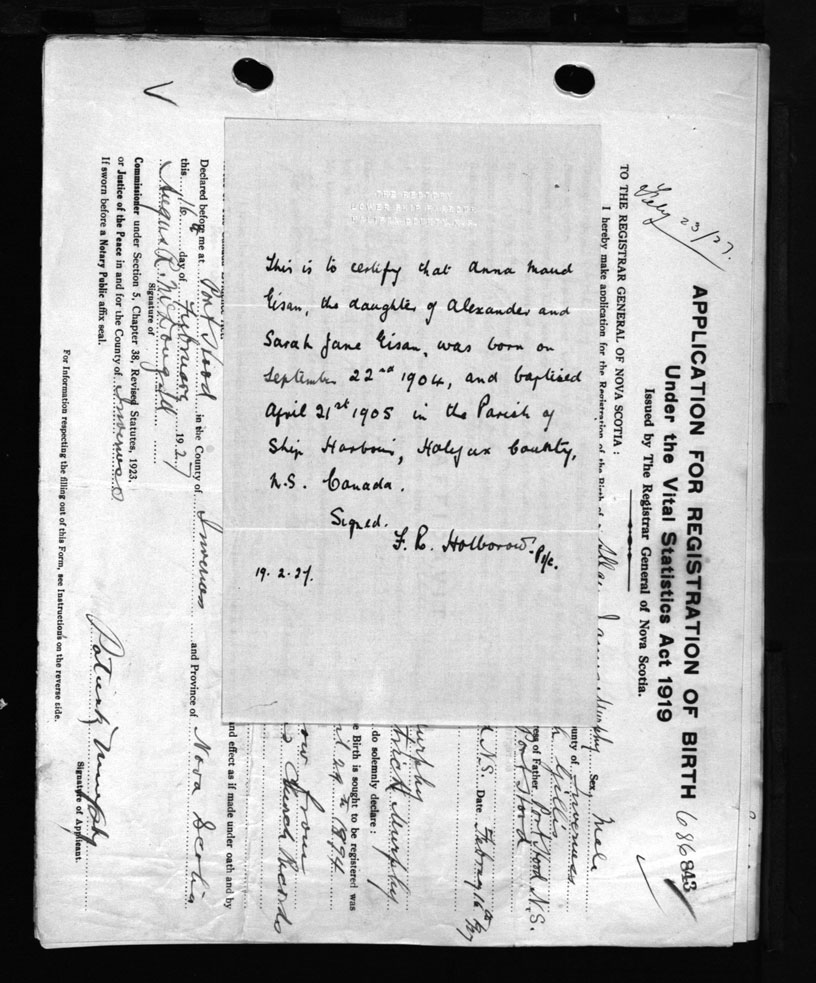 This is to certify that Anna Maud
Eisan, the daughter of Alexander and
Sarah Jane Eisan, was born on
September 22nd 1904, and baptised
April 21st 1905 in the Parish of
Ship Harbour, Halifax County,
N.S. Canada.
Signed.
F. R. Holborow. P.i/c.
19. 2. 27.
APPLICATION FOR REGISTRATION OF BIRTH 686843
Under the Vital Statistics Act 1919
Issued by The Registrar General of Nova Scotia.
23/27.
TO THE REGISTRAR GENERAL OF NOVA SCOTIA:
I hereby make application for the Registration of the Birth of a Murphy Sex, Male
County of Inverness
Gillis
ress of Father Port Hood N.S.
Port Hood
N.S. Date February 16th
do solemnly declare:
Murphy
Patrick Murphy
e Birth is sought to be registered was
29th 1894
now from
Church Records
and effect as if made under oath and by
Declared before me at Port Hood in the County of Inverness and Province of Nova Scotia
this 16 day of February 1927
Signature of
Commissioner under Section 5, Chapter 38, Revised Statutes, 1923,
or Justice of the Peace in and for the County of Inverness
If sworn before a Notary Public affix seal.
Patrick Murphy
Signature of Applicant.
For Information respecting the filling out of this Form, see Instructions on the reverse side.